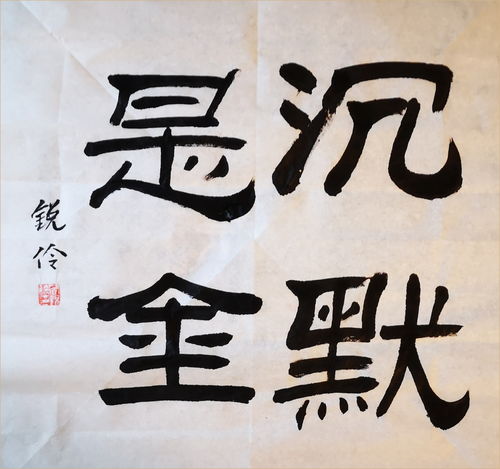 沉默
是金
锐伶